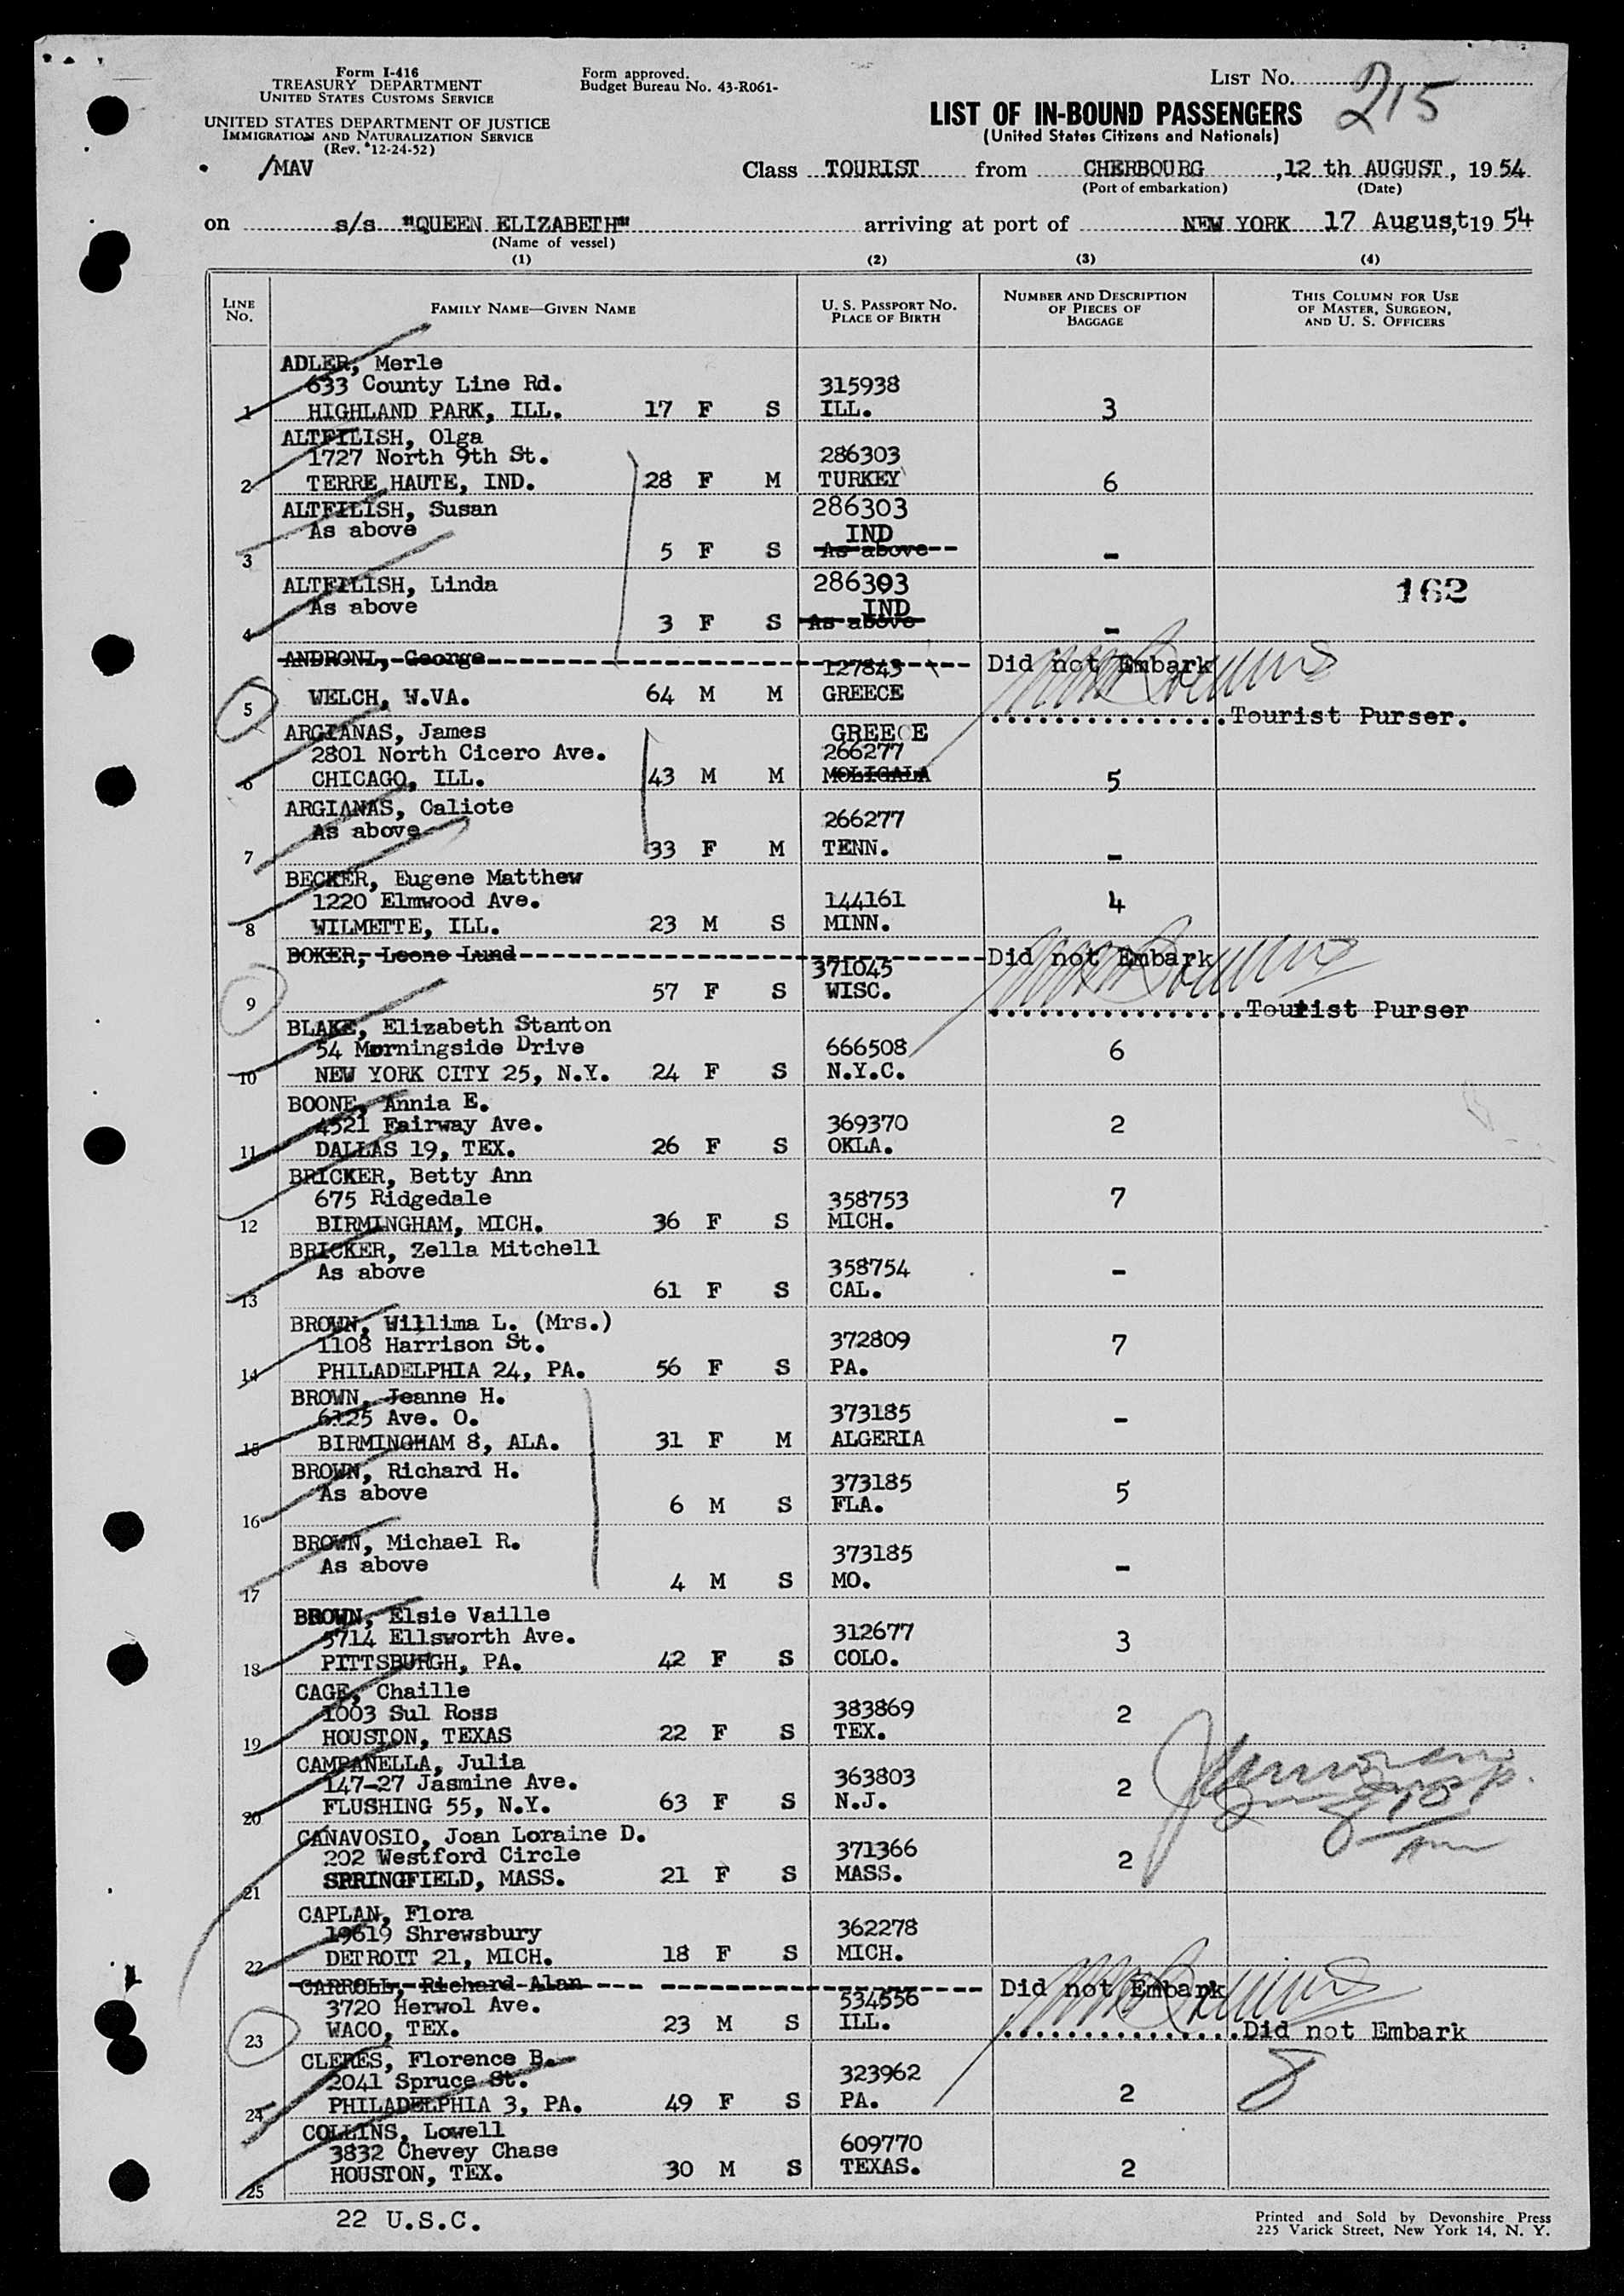 Form I-416
TREASURY DEPARTMENT
UNITED STATES CUSTOMS SERVICE
UNITED STATES DEPARTMENT OF JUSTICE
IMMIGRATION AND NATURALIZATION SERVICE
(Rev. 12-24-52)
/MAV
Form approved.
Budget Bureau No. 43-R061-
LIST NO. 215
LIST OF IN-BOUND PASSENGERS
(United States Citizens and Nationals)
Class TOURIST from CHERBOURG, 12 th AUGUST, 1954
(Port of embarkation) (Date)
on s/s "QUEEN ELIZABETH" arriving at port of NEW YORK 17 August, 1954
(Name of vessel)
(1) (2) (3) (4)
LINE NO.
FAMILY NAME—GIVEN NAME
U. S. PASSPORT NO.
PLACE OF BIRTH
NUMBER AND DESCRIPTION
OF PIECES OF
BAGGAGE
THIS COLUMN FOR USE
OF MASTER, SURGEON,
AND U. S. OFFICERS
ADLER, Merle
633 County Line Rd. 315938
1 HIGHLAND PARK, ILL. 17 F S ILL. 3
ALTFILISH, Olga
1727 North 9th St. 286303
2 TERRE HAUTE, IND. 28 F M TURKEY 6
ALTFILISH, Susan 286303
As above IND
3 5 F S As above -
ALTFILISH, Linda 286303
As above IND
4 3 F S As above -
162
ANDRONI, George 127843 Did not Embark
5 WELCH, W.VA. 64 M M GREECE
Tourist Purser.
ARGIANAS, James GREECE
2801 North Cicero Ave. 266277
6 CHICAGO, ILL. 43 M M MOLIGALA 5
ARGIANAS, Caliote 266277
As above
7 33 F M TENN. -
BECKER, Eugene Matthew
1220 Elmwood Ave. 144161 4
8 WILMETTE, ILL. 23 M S MINN.
BOKER, Leone Lund 371045 Did not Embark
9 57 F S WISC.
Tourist Purser
BLAKE, Elizabeth Stanton
54 Morningside Drive 666508 6
10 NEW YORK CITY 25, N.Y. 24 F S N.Y.C.
BOONE, Annia E.
4521 Fairway Ave. 369370 2
11 DALLAS 19, TEX. 26 F S OKLA.
BRICKER, Betty Ann
675 Ridgedale 358753 7
12 BIRMINGHAM, MICH. 36 F S MICH.
BRICKER, Zella Mitchell
As above 358754 -
13 61 F S CAL.
BROWN, Willima L. (Mrs.)
1108 Harrison St. 372809 7
14 PHILADELPHIA 24, PA. 56 F S PA.
BROWN, Jeanne H.
6125 Ave. O. 373185 -
15 BIRMINGHAM 8, ALA. 31 F M ALGERIA
BROWN, Richard H.
As above 373185 5
16 6 M S FLA.
BROWN, Michael R.
As above 373185 -
17 4 M S MO.
BROWN, Elsie Vaille
5714 Ellsworth Ave. 312677 3
18 PITTSBURGH, PA. 42 F S COLO.
CAGE, Chaille
1003 Sul Ross 383869 2
19 HOUSTON, TEXAS 22 F S TEX.
CAMPANELLA, Julia
147-27 Jasmine Ave. 363803 2
20 FLUSHING 55, N.Y. 63 F S N.J.
CANAVOSIO, Joan Loraine D.
202 Westford Circle 371366 2
21 SPRINGFIELD, MASS. 21 F S MASS.
CAPLAN, Flora
19619 Shrewsbury 362278
22 DETROIT 21, MICH. 18 F S MICH.
CARROLL, Richard Alan Did not Embark
3720 Herwol Ave. 534556
23 WACO, TEX. 23 M S ILL.
Did not Embark
CLERES, Florence B.
2041 Spruce St. 323962 8
24 PHILADELPHIA 3, PA. 49 F S PA. 2
COLLINS, Lowell
3832 Chevey Chase 609770
25 HOUSTON, TEX. 30 M S TEXAS. 2
22 U.S.C.
Printed and Sold by Devonshire Press
225 Varick Street, New York 14, N. Y.